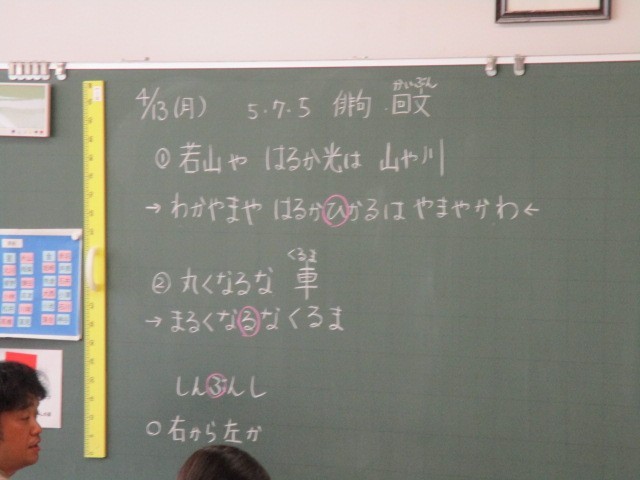 4/13(月) 5.7.5 俳句・回文
かいぶん
① 若山や はるか光は 山や川
→ わかやまや はるかひかるは やまやかわ ←
くるま
② 丸くなるな 車
→ まるくなるなくるま
しんぶんし
○ 右から左か